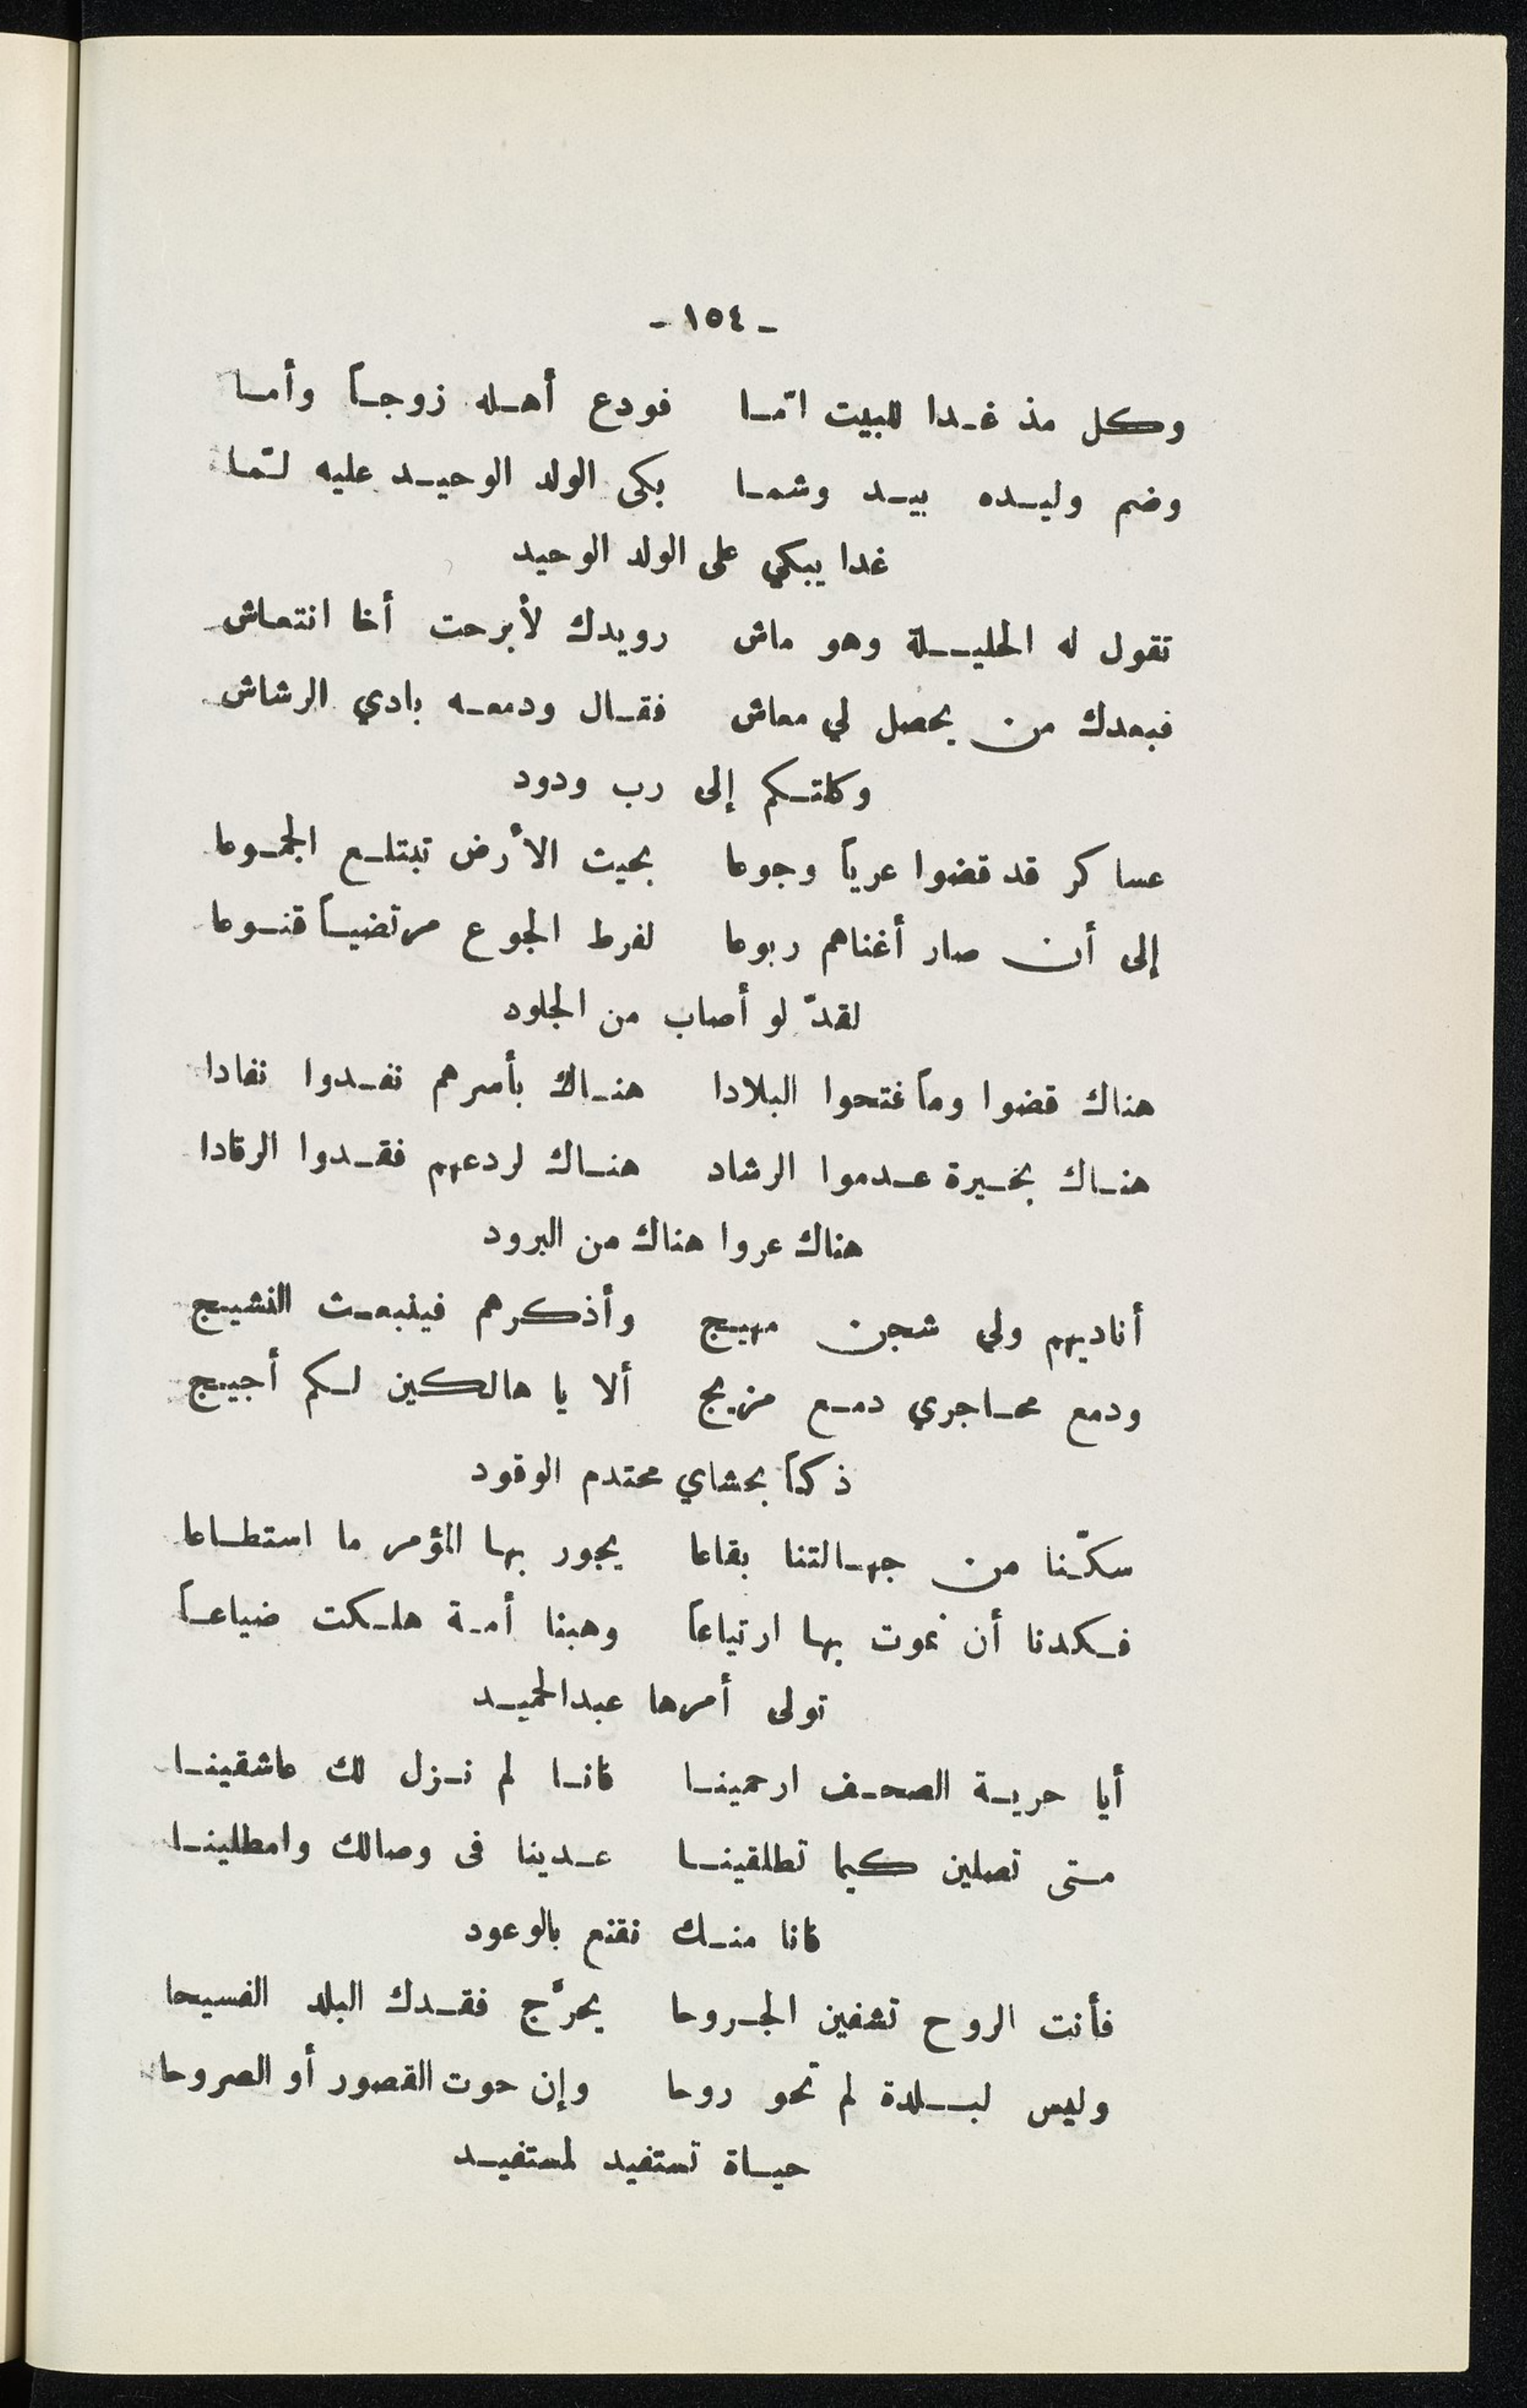 - ١٥٤ -
وكل مذ غدا للبيت امّا فودع أهله زوجاً وأما
وضم وليده بيد وشما بكى الولد الوحيد عليه لمّا
غدا يبكي على الولد الوحيد
تقول له الحليلة وهو ماش رويدك لأبرحت أخا انتعاش
فبعدك من يحصل لي معاش فقال ودمعه بادي الرشاش
وكلتكم إلى رب ودود
عساكر قد قضوا عرياً وجوعا بحيث الأرض تبتلع الجموعا
إلى أن صار أغناهم ربوعا لفرط الجوع مرتضياً قنوعا
لقدّ لو أصاب من الجلود
هناك قضوا وما فتحوا البلادا هناك بأسرهم نفدوا نفادا
هناك بحيرة عدموا الرشاد هناك لردعهم فقدوا الرقادا
هناك عروا هناك من البرود
أناديهم ولي شجن مهيج وأذكرهم فينبعث النشيج
ودمع محاجري دمع مزيج ألا يا هالكين لكم أجيج
ذكا بحشاي محتدم الوقود
سكنّا من جهالتنا بقاعا يجور بها المؤمر ما استطاعا
فكدنا أن نموت بها ارتياعاً وهبنا أمة هلكت ضياعاً
تولى أمرها عبدالحميد
أيا حرية الصحف ارحمينا فانا لم نزل لك عاشقينا
متى تصلين كيما تطلقينا عدينا فى وصالك وامطلينا
فانا منك نقنع بالوعود
فأنت الروح تشفين الجروحا يحرّج فقدك البلد الفسيحا
وليس لبلدة لم تحو روحا وإن حوت القصور أو الصروحا
حياة تستفيد لمستفيد